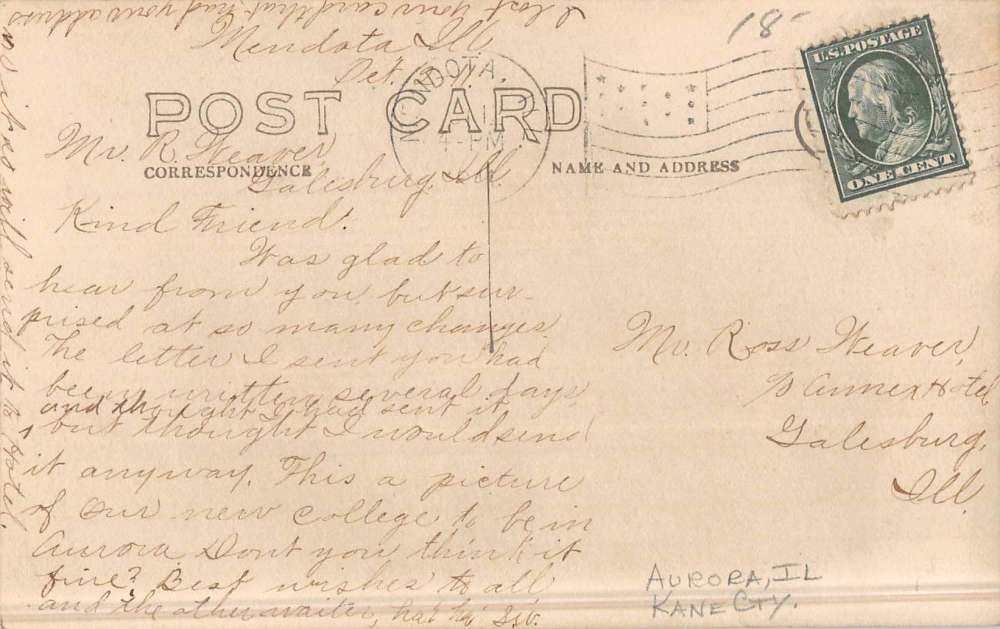 I lost your card that had your address
so it is will send it to Hotel.
Mendota Ill.
Oct.
18-
U.S. POSTAGE
ONE CENT
4-PM
POST CARD
CORRESPONDENCE
NAME AND ADDRESS
Mr. R. Weaver,
Galesburg, Ill.
Kind Friend.
Was glad to
hear from you but sur-
prised at so many changes
The letter I sent you had
been written several days
and thought I had sent it
but thought I would send
it anyway. This a picture
of our new college to be in
Aurora Dont you think it
fine? Best wishes to all
and the other waiter, ha! ha!
Mr. Ross Weaver,
% Annex Hotel
Galesburg,
Ill.
AURORA, IL
KANE CTY.